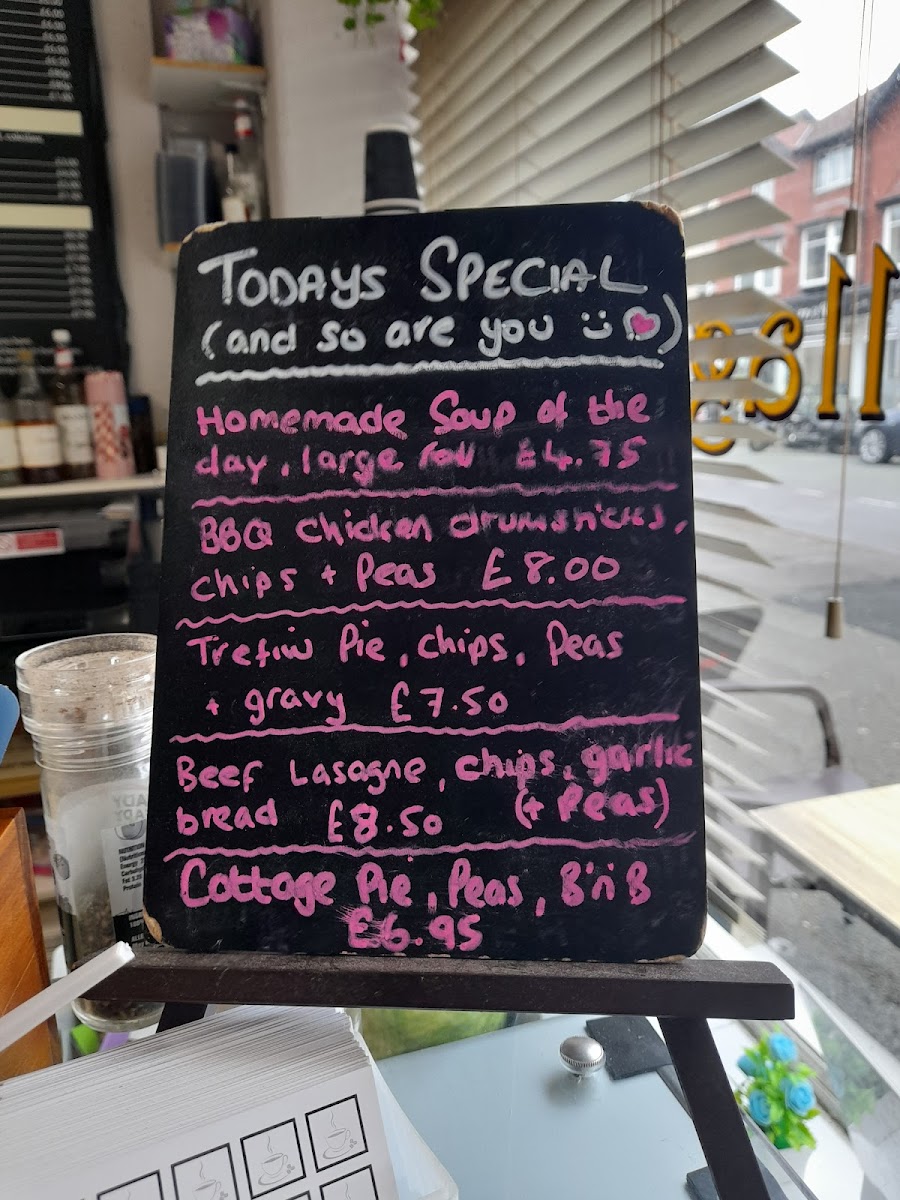 TODAYS SPECIAL
(and so are you )
Homemade Soup of the
day, large roll £4.75
BBQ chicken drumsticks,
chips + Peas £8.00
Trefiw Pie, chips, Peas
+ gravy £7.50
Beef Lasagne, chips, garlic
bread £8.50 (+ Peas)
Cottage Pie, Peas, B'n'B
£6.95